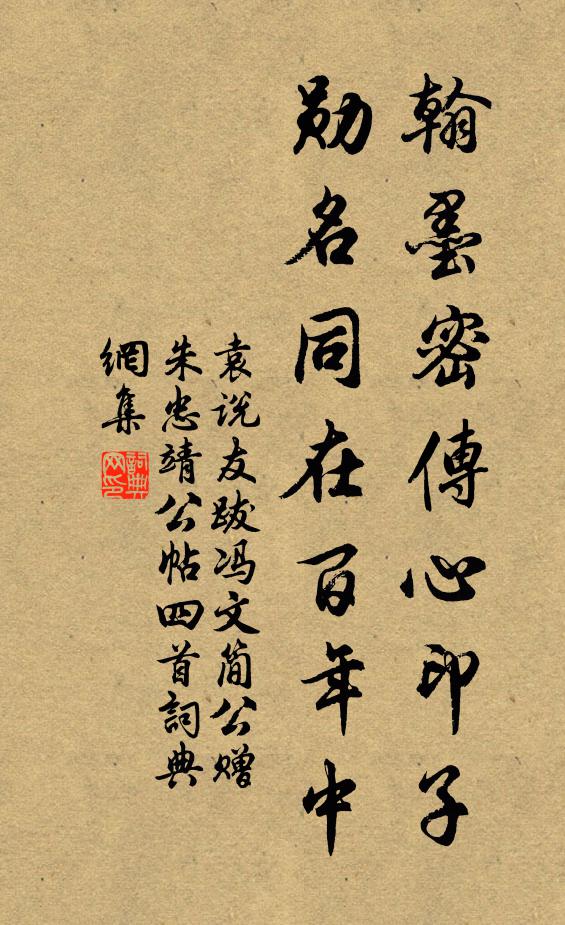 翰墨密傳心印子
勛名同在百年中
袁说友跋冯文简公赠
朱忠靖公帖四首詞典
網集
詞典网印